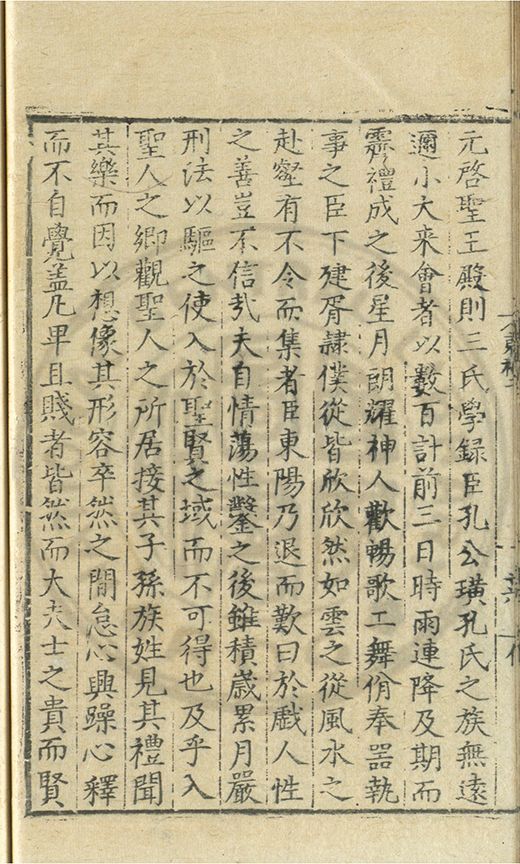 元啓聖王殿則三氏學録臣孔公璜孔氏之族無遠
邇小大来會者以數百計前三日時雨連降及期而
霽禮成之後星月朗耀神人歡暢歌工舞佾奉噐執
事之臣下建胥隸僕從皆欣欣然如雲之從風水之
赴壑有不令而集者臣東陽乃退而歎曰於戲人性
之善豈不信㢤夫自情蕩性鑿之後雖積歳累月嚴
刑法以驅之使入於聖賢之域而不可得也及乎入
聖人之鄉觀聖人之所居接其子孫族姓見其禮聞
其樂而因以想像其形容卒然之間怠心興躁心釋
而不自覺盖凡卑且賤者皆然而大夫士之貴而賢